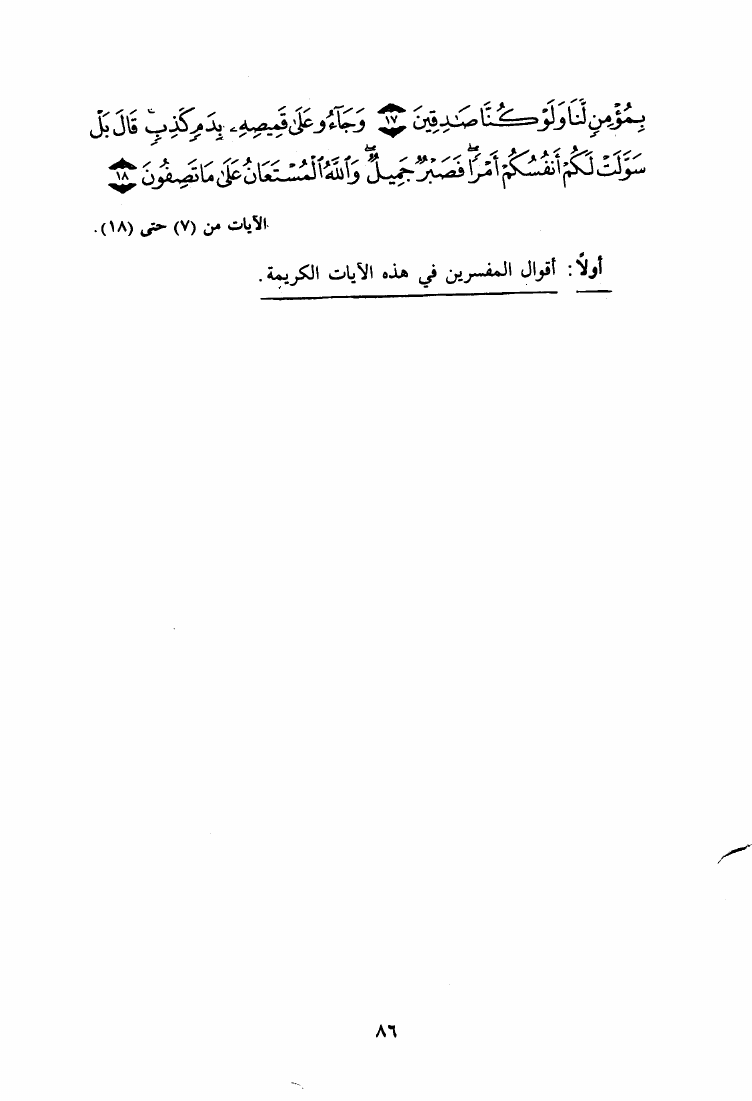 بِمُؤْمِنٍ لَّنَا وَلَوْ كُنَّا صَٰدِقِينَ ١٧ وَجَآءُو عَلَىٰ قَمِيصِهِۦ بِدَمٍ كَذِبٍ ۚ قَالَ بَلْ
سَوَّلَتْ لَكُمْ أَنفُسُكُمْ أَمْرًا ۖ فَصَبْرٌ جَمِيلٌ ۖ وَٱللَّهُ ٱلْمُسْتَعَانُ عَلَىٰ مَا تَصِفُونَ ١٨
الآيات من (٧) حتى (١٨).
أولاً: أقوال المفسرين في هذه الآيات الكريمة.
٨٦